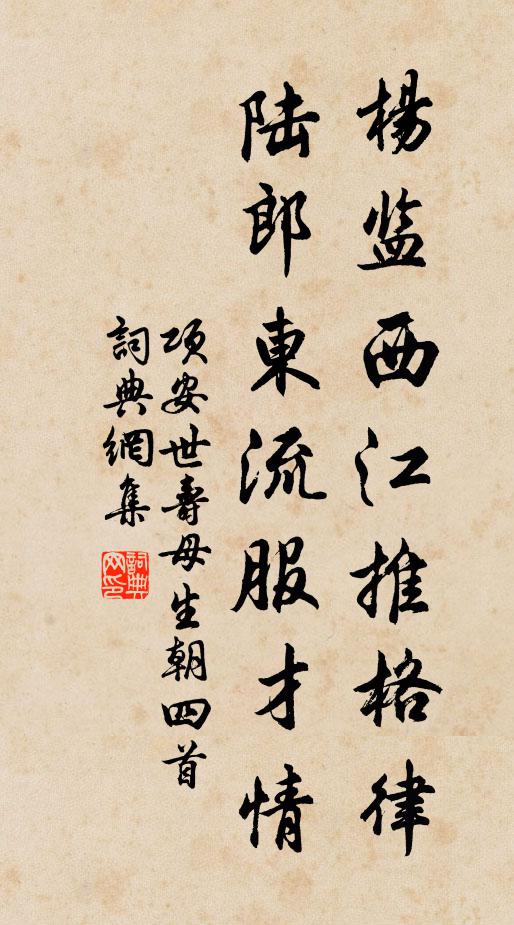 楊监西江推格律
陆郎東流服才情
项安世壽母生朝四首
詞典網集
詞典网印